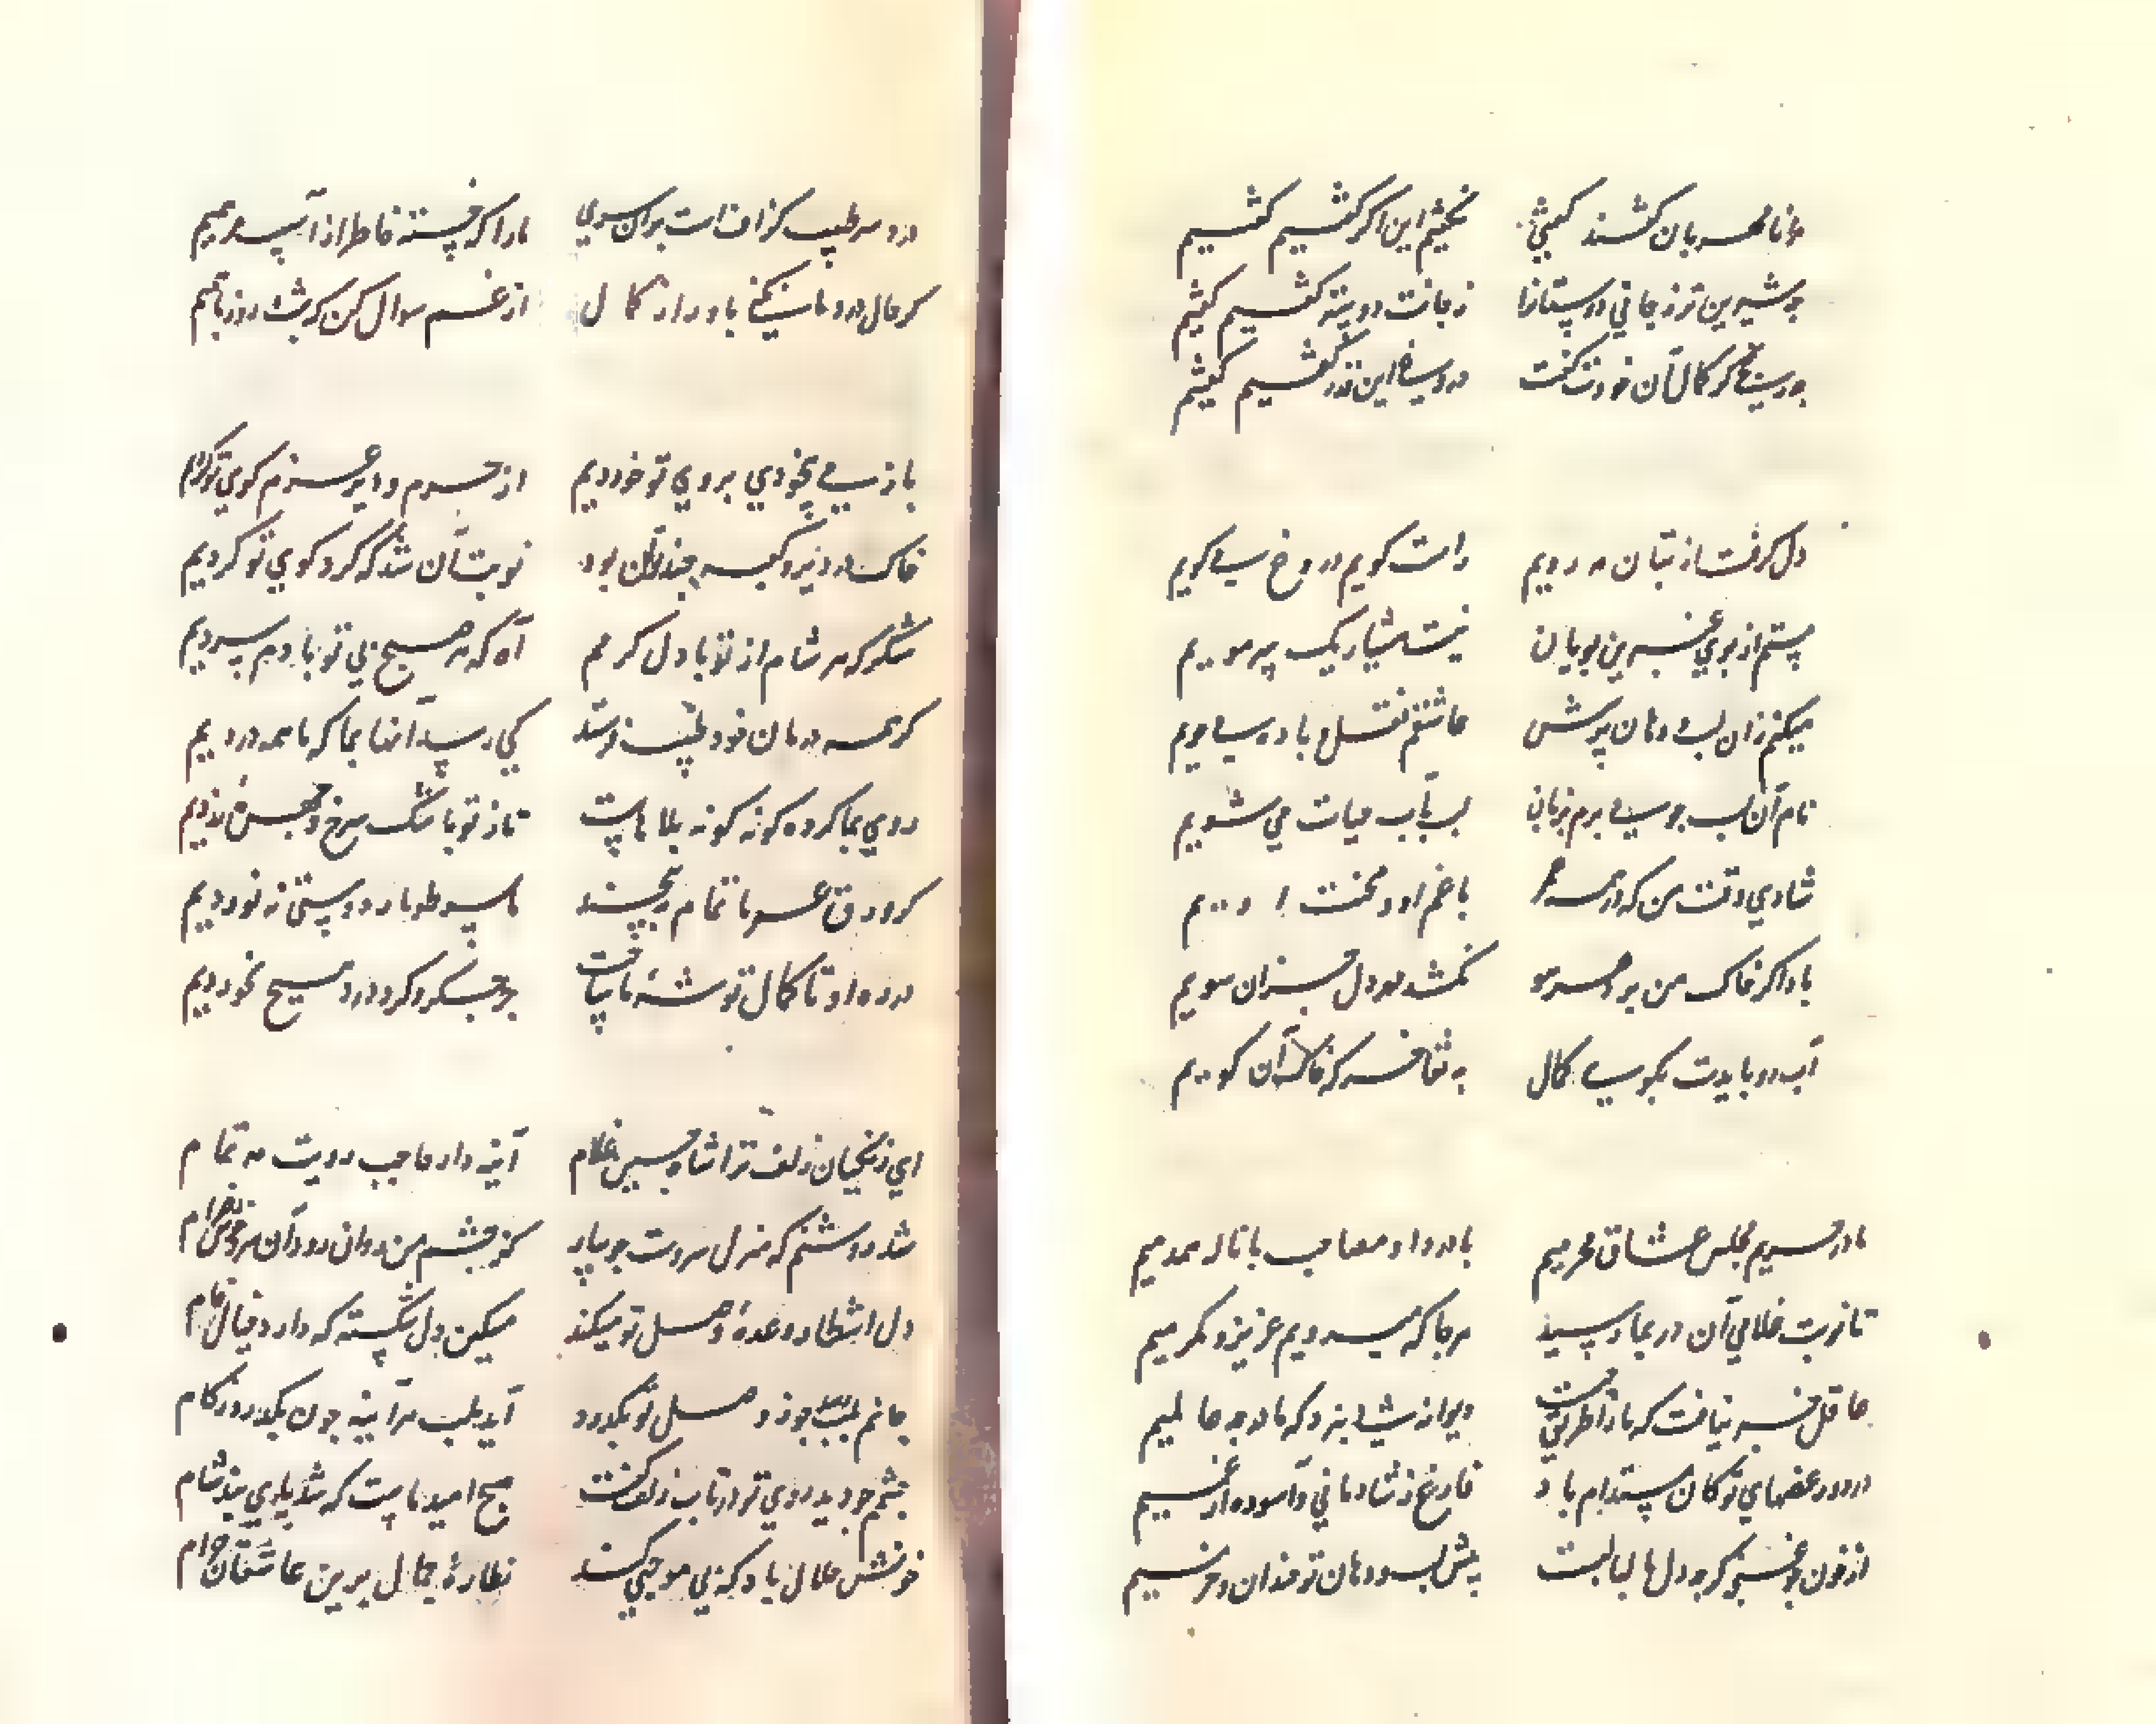 چو نا مهربان کشند کشی نکشیم این اگر کشیم کشیم
چو شیرین تر ز جانی دوستانرا ز جانت دوستر کشیم کشیم
چو رنجی گر کمال آن خودت گفت دروغی این قدر گفتیم گفتیم
دل گرفت از بتان مه رویم راست گویم دروغ می گویم
مستم از بوی عنبرین مویان نیست هشیار یک سر مویم
میکنم زان لب و دهان پرسش عاشقم نقل و باده می جویم
نام آن لب چو می برم بزبان لب بآب حیات می شویم
شادی وقت من که در همه عمر با غم او و محنت اویم
باد اگر خاک من برد هر سو نکشد مهر دل جز آن سویم
آب رو بایدت بگوی کمال به تفاخر که خاک آن کویم
ما در حریم مجلس عشاق محرمیم با درد او مصاحب با ناله همدمیم
تا نوبت غلامی آن در بما رسید هر جا که میرویم عزیز و مکرمیم
عاقل خبر نیافت که ما را طریق چیست دیوانه شد ز بند که ما در چه عالمیم
در دور غمهای تو کان مستدام باد فارغ ز شادمانی و آسوده از غمیم
از خون چو غنچه گرچه دل ما لبالبست پیش لب و دهان تو خندان و خرمیم
درد سر طبیب گزافست بر آن سوی ما را که خسته خاطر از آسیب مرهمیم
گر حال درد ما نکنی باور از کمال از غم سوال کن که شب و روز با همیم
باز می بیخودی بروی تو خوردیم از حرم و دیر عزم کوی تو کردیم
خاک در دیر و کعبه چند توان بود نوبت آن شد که گرد کوی تو گردیم
شکر که هر شام از تو با دل گرمیم آه که هر صبح بی تو با دم سردیم
گر همه درمان خود طبیب فرستد کی رسد آنها بما که ما همه دردیم
روی بما کرده گونه گونه بلاهاست تا ز تو با اشک سرخ و چهره زردیم
گر ورق عمر ما تمام بپیچند ما سر طومار دوستی نه نوردیم
در ره او تا کمال توشه ما یافت جز جگر گرد گرد و درد هیچ نخوردیم
ای زنگیان زلف ترا شاه چین غلام آینه دار حاجب رویت مه تمام
شد روشنم که منزل سروست جویبار کز چشم من روان رود آن سرو خوش خرام
دل انتظار وعده وصل تو میکند مسکین دل شکسته که دارد خیال خام
جانم بلب چو ز وصل تو بگذرد آید بلب هر آینه چون بگذرد ز کام
چشمم چو دید روی تو در تاب زلف گفت صبح امید ماست که شد پای بند شام
خونش حلال باد که بی موجبی کند نظاره جمال برین عاشقان حرام